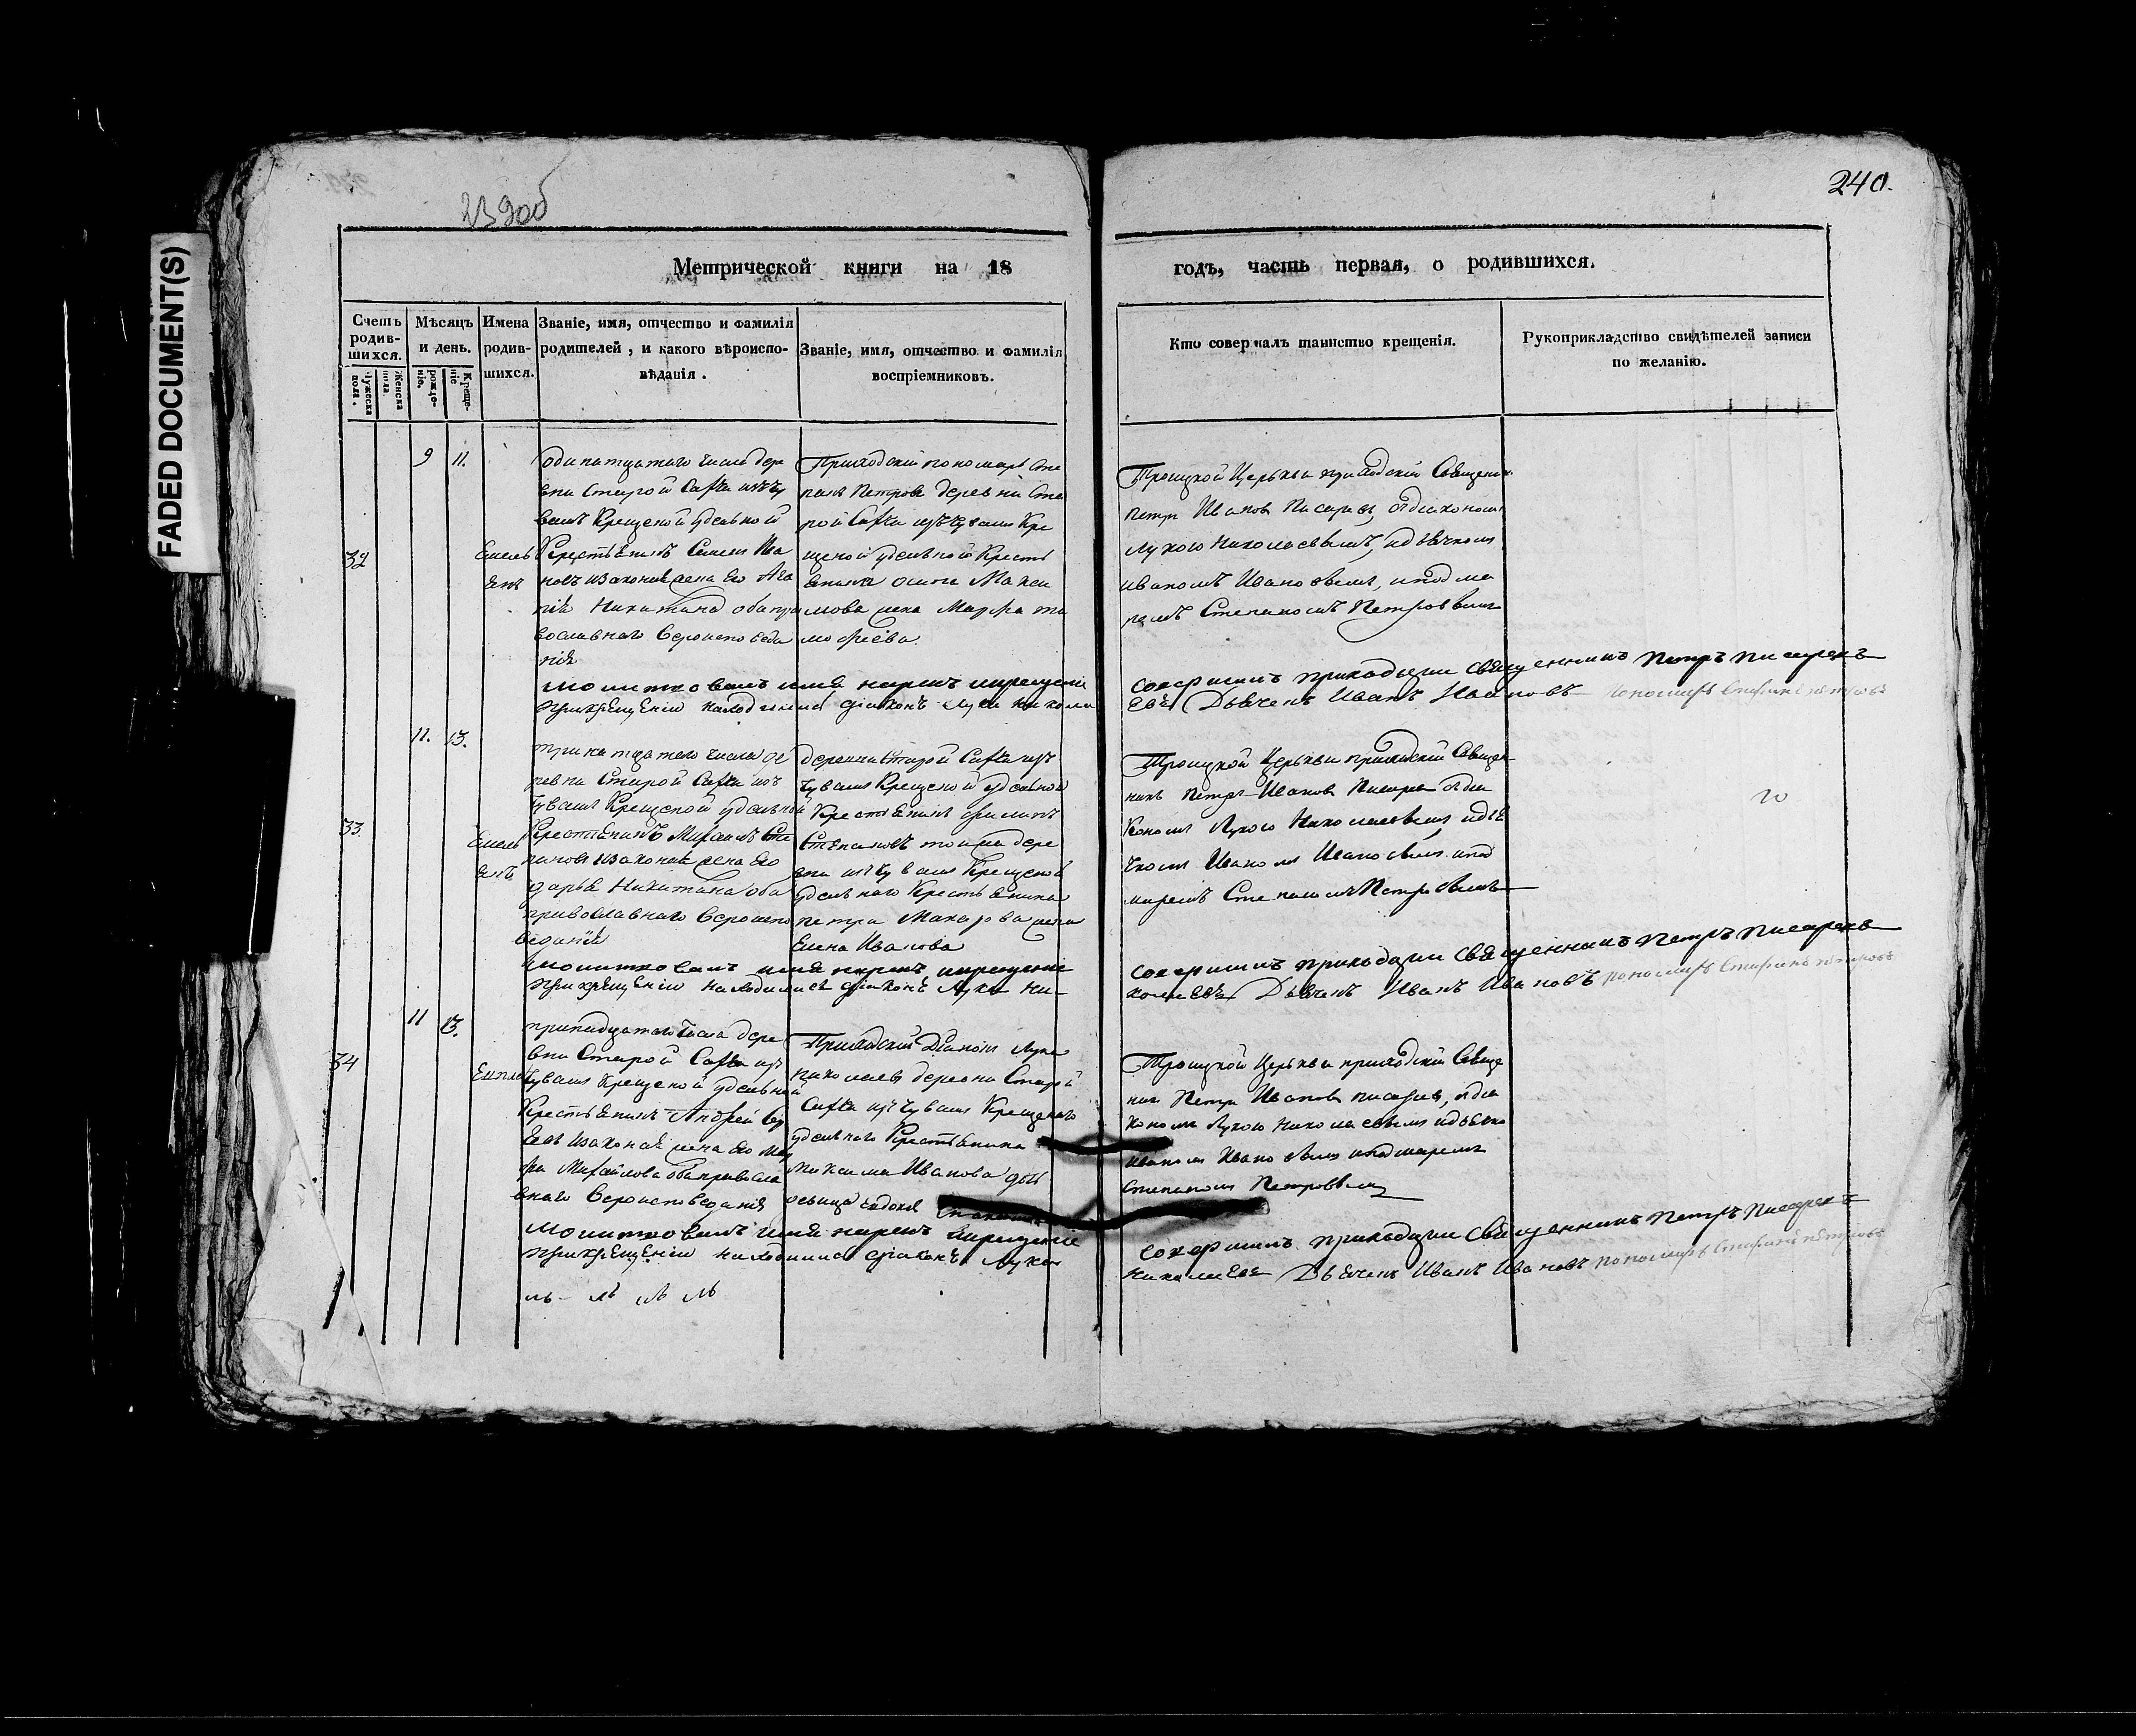 FADED DOCUMENT(S)
239об
240.
Метрической книги на 18
годъ, часть первая, о родившихся.
Счетъ родив-шихся.
Мѣсяцъ и день.
Имена родив-шихся.
Званіе, имя, отчество и фамилія родителей, и какого вѣроиспо-вѣданія.
Званіе, имя, отчество и фамилія воспріемниковъ.
Кто совершалъ таинство крещенія.
Рукоприкладство свидѣтелей записи по желанію.
Мужеска пола.
Женска пола
рожде-ніе.
Креще-ніе
32
9
11.
Емель
янъ
одинатцатаго числа дере
вни Старой
вашъ Крещеной удельной
Крестьянинъ Семенъ Ива
новъ изаконная жена Его Ага
Никитина оба пра
вославнаго Вероиспведа
нія
Приходскій пономарь Сте
панъ Петровъ деревни Ста
рой
щеной удельной Кресть
янина Макси
мова жена Марфа ти
мофеева
Троицкой Церькви приходскій Священик
Петръ Иванов Писарев, сдіакономъ
Лукою Николаевымъ, идьячкомъ
иваномъ Ивановымъ, ипонома
ремъ Степаномъ Петровымъ
Молитвовалъ имя нарекъ икрещеніе
Прикрещеніи находились діаконъ Лука Никола
совершилъ приходскій священникъ Петръ Писаревъ
евъ Дьячекъ Иванъ Ивановъ пономарь Степанъ Петровъ
33.
11.
13.
Емель
янъ
тринатцатаго числа де
ревни Старой
Чувашъ Крещеной удельной
Крестьянинъ
пановъ изаконная жена Его
дарья Никитина оба
православнаго Вероиспо
веданія
деревни Старой
Чувашъ Крещеной удельной
Крестьянинъ
Степановъ тойже дере
вни изчувашъ Крещеной
удельнаго Крестьянина
петра Макарова жена
Елена Иванова
Троицкой Церькви приходскій Священ
никъ Петръ Иванов Писарев сдіа
кономъ Лукою Николаевымъ идья
чкомъ Иваномъ Ивановымъ ипоно
маремъ Степаномъ Петровымъ
Молитвовалъ имя нарекъ, икрещеніе
Прикрещеніи находились діаконъ Лука Ни-
совершилъ приходскій священникъ Петръ Писаревъ
колаевъ Дьячекъ Иванъ Ивановъ пономарь Степанъ Петровъ
34
11
13.
тринадцатаго числа дере
вни Старой
Чувашъ Крещеной удельной
Крестьянинъ Андрей
изаконная жена Его Мар
фа Михайлова оба правосла
внаго Вероисповеданія
Приходскій Діаконъ Лука
николаевъ деревни Старой
изчувашъ Крещенаго
удельнаго Крестьянина
Максима Иванова
Троицкой Церькви приходскій Свяще
никъ Петръ Иванов писарев, сдіа
кономъ Лукою Николаевымъ идьячко
иваномъ Ивановымъ ипономаремъ
степаномъ Петровымъ
Молитвовалъ имя нарекъ икрещеніе
Прикрещеніи находились діаконъ Лука
совершилъ приходскій священникъ Петръ Писаревъ
Николаевъ Дьячекъ Иванъ Ивановъ пономарь Степанъ Петровъ